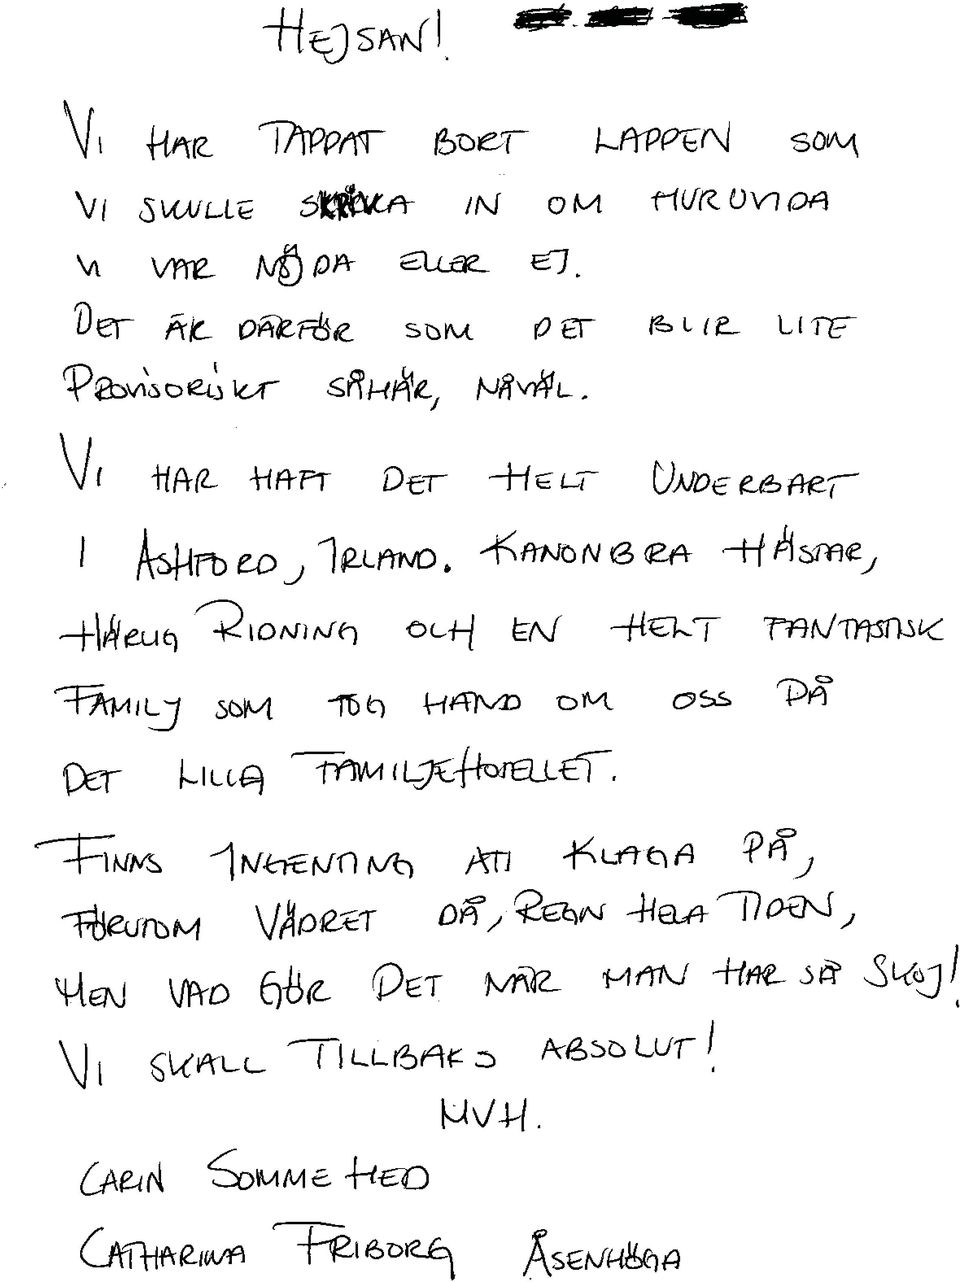 HEJSAN!
VI HAR TAPPAT BORT LAPPEN SOM
VI SKULLE SKICKA IN OM HURUVIDA
VI VAR NÖJDA ELLER EJ.
DET ÄR DÄRFÖR SOM DET BLIR LITE
PROVISORISKT SÅHÄR, NÅVÄL.
VI HAR HAFT DET HELT UNDERBART
I ASHFORD, IRLAND. KANONBRA HÄSTAR,
HÄRLIG RIDNING OCH EN HELT FANTASTISK
FAMILJ SOM TOG HAND OM OSS PÅ
DET LILLA FAMILJEHOTELLET.
FINNS INGENTING ATT KLAGA PÅ,
FÖRUTOM VÄDRET DÅ, REGN HELA TIDEN,
MEN VAD GÖR DET NÄR MAN HAR SÅ SKOJ!
VI SKALL TILLBAKS ABSOLUT!
MVH.
CARIN SOMMEHED
CATHARINA FRIBORG ÅSENHÖGA